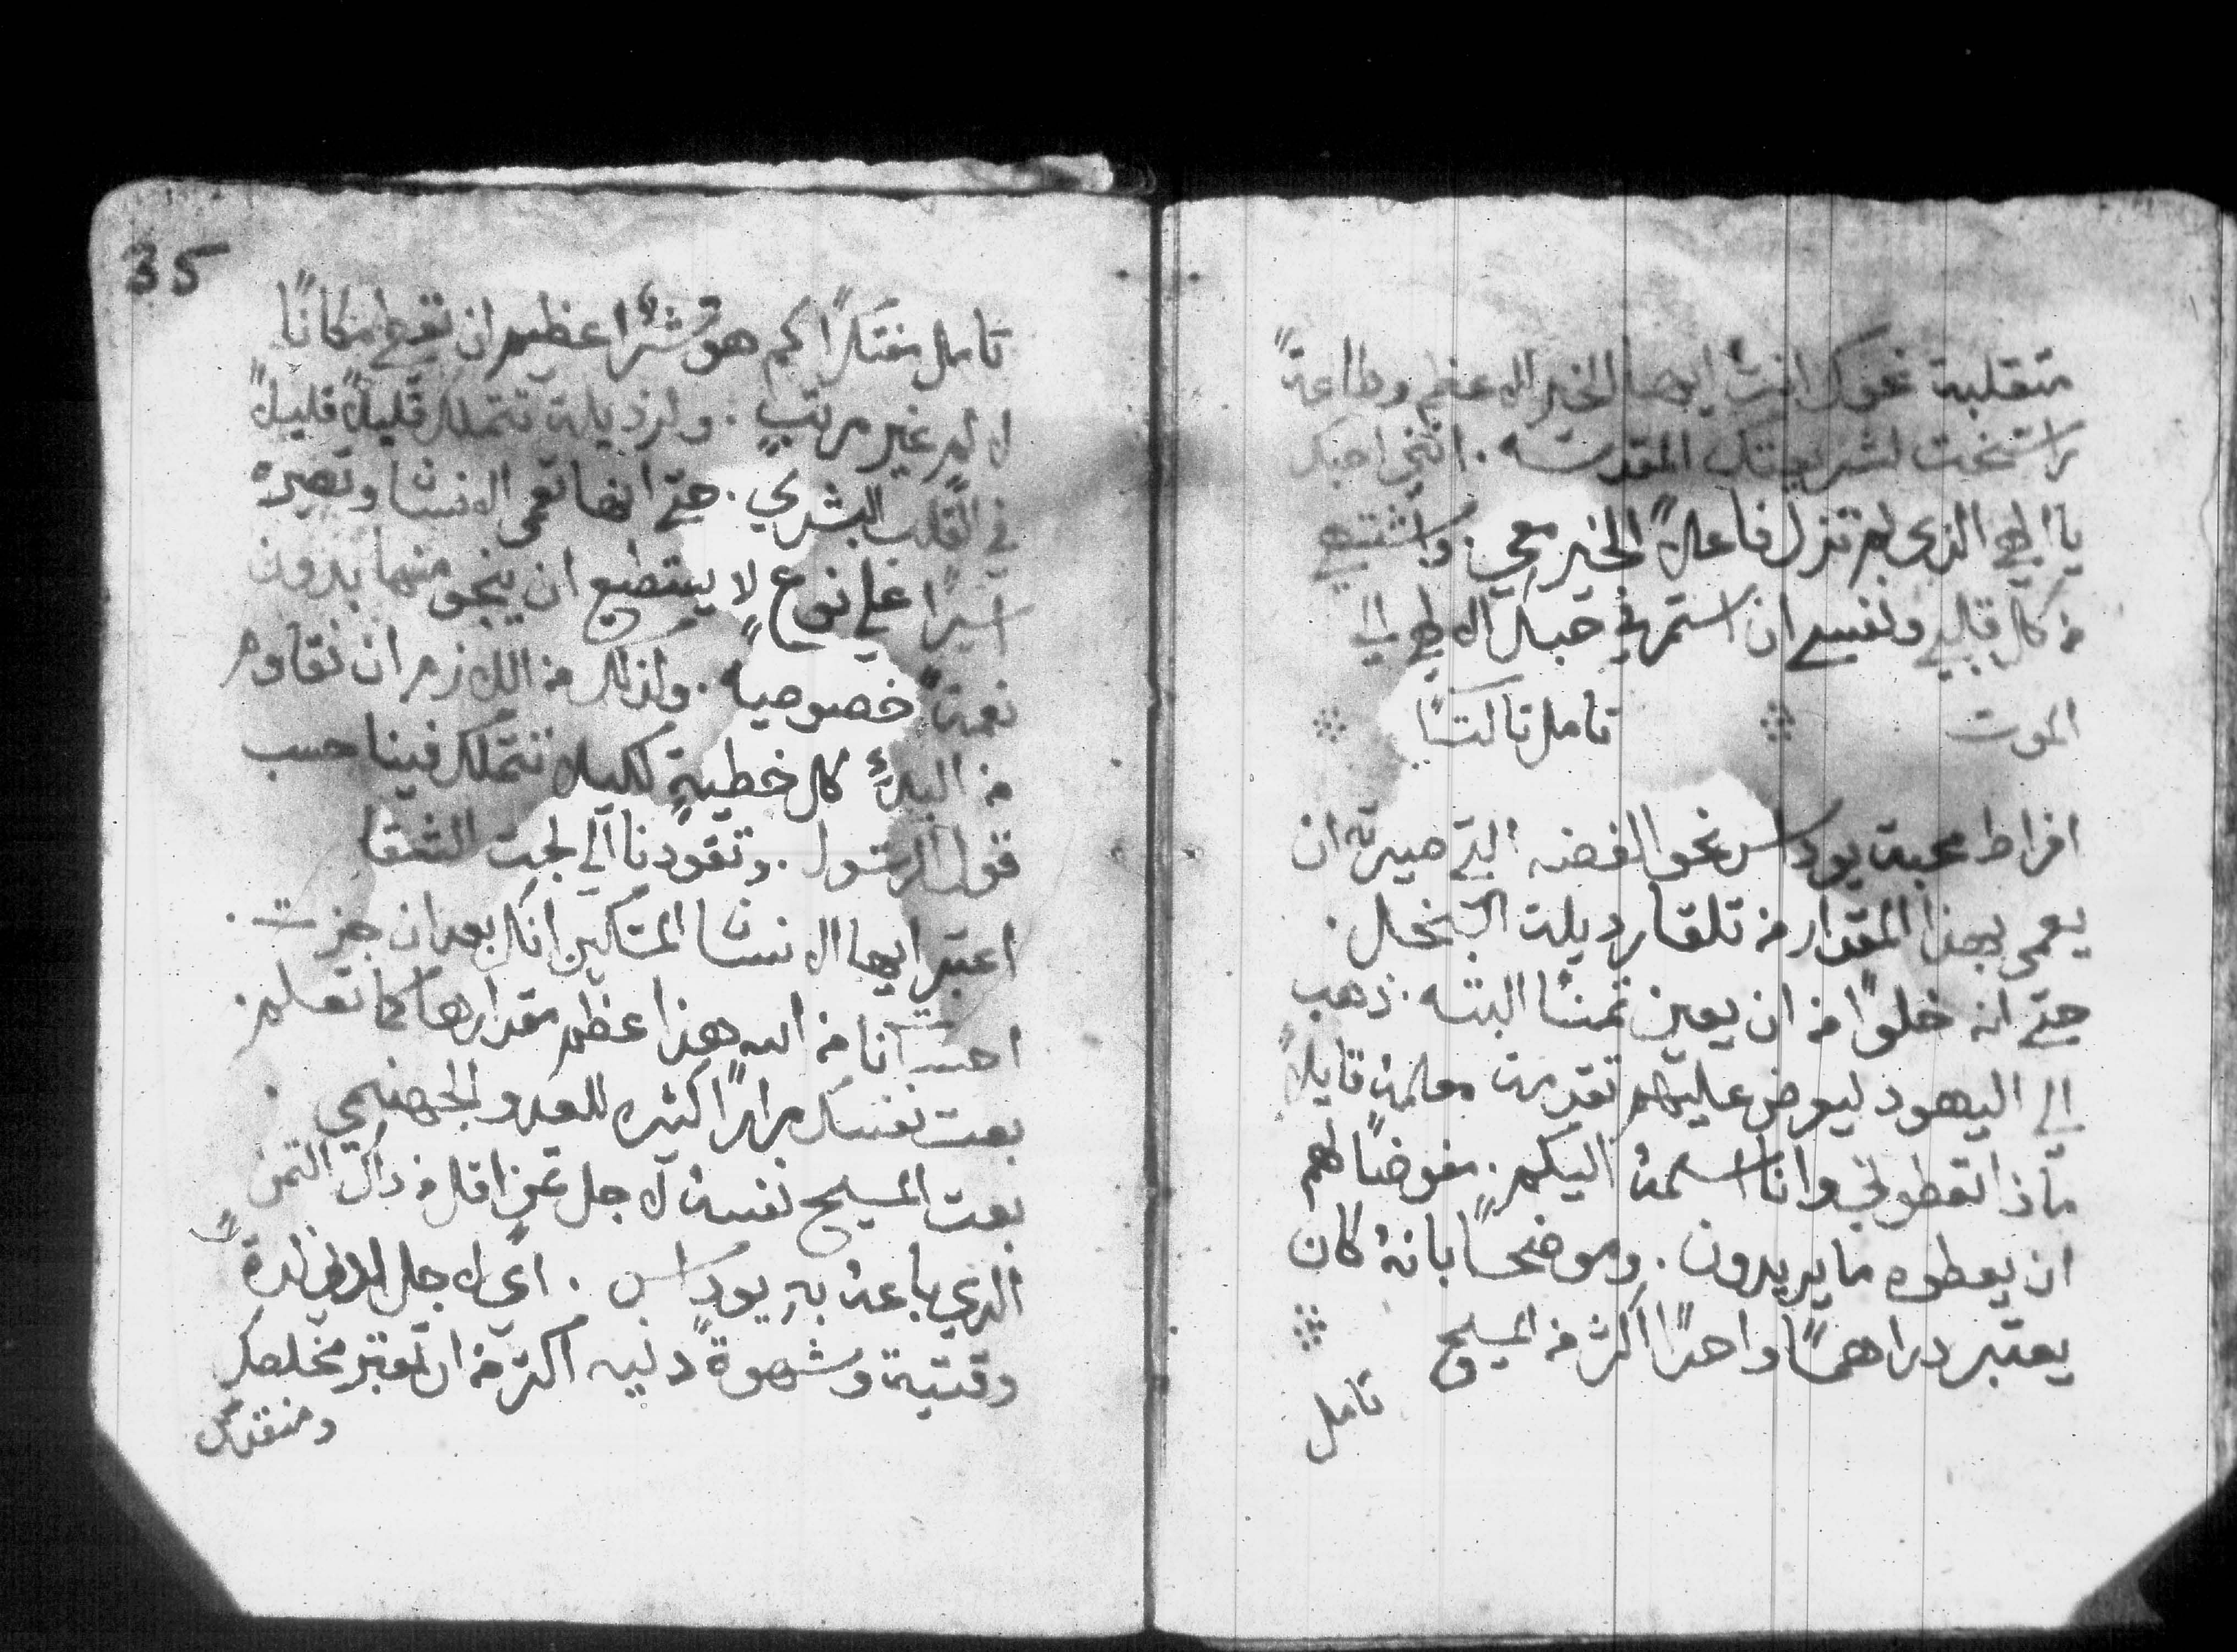 متقلبة نحوك انت ايها الخير الاعظم وطاعة
راسخت لشريعتك المقدسه . انني احبك
يا الهي الذي لم تزل فاعلاً الخير معي . واشتهي
من كل قلبي ونفسي ان استمر في حبك الالهي الي
الموت تامل تالتًا
افراط محبة يوداس نحو الفضه التي صيرته ان
يعمي بهذا المقدار من تلقا رديلة البخل .
حتي انه خلوًا من ان يعين تمنًا البته . ذهب
الي اليهود ليعرض عليهم تقدمة معلمه قايلاً
ماذا تعطوني وانا اسلمه اليكم . مفوضًا لهم
ان يعطوه ما يريدون . وموضحًا بانهُ كان
يعتبر دراهمًا واحدًا اكثر من المسيح
تامل
35
تامل مفتكرًا كم هو شرًا عظيم ان تعطي مكانًا
لالم غير مرتبٍ . والرذيلة تتملك قليلاً قليلاً
في القلب البشري . حتي انها تعمي الانسان وتصيره
اسيرًا علي نوع لا يستطيع ان ينجو منها بدون
نعمةً خصوصيه . ولذلك من اللازم ان نقاوم
من البدءِ كل خطيةٍ لكيلا تتملك فينا حسب
قول الرسول . وتقودنا الي لجت الشقا
اعتبر ايها الانسان المسكين انك بعد ان جزت .
احسانا من الله هذا عظم مقدارها كما تعلم
بعت نفسك مرارًا كثيره للعدو الجهنمي .
بعت المسيح نفسه لاجل تمن اقل من داك التمن
الذي باعهُ بهِ يوداس . اي لاجل ادني لذةً
وقتية وشهوةً دنيه اكثر من ان تعتبر مخلصك
ومنقدك